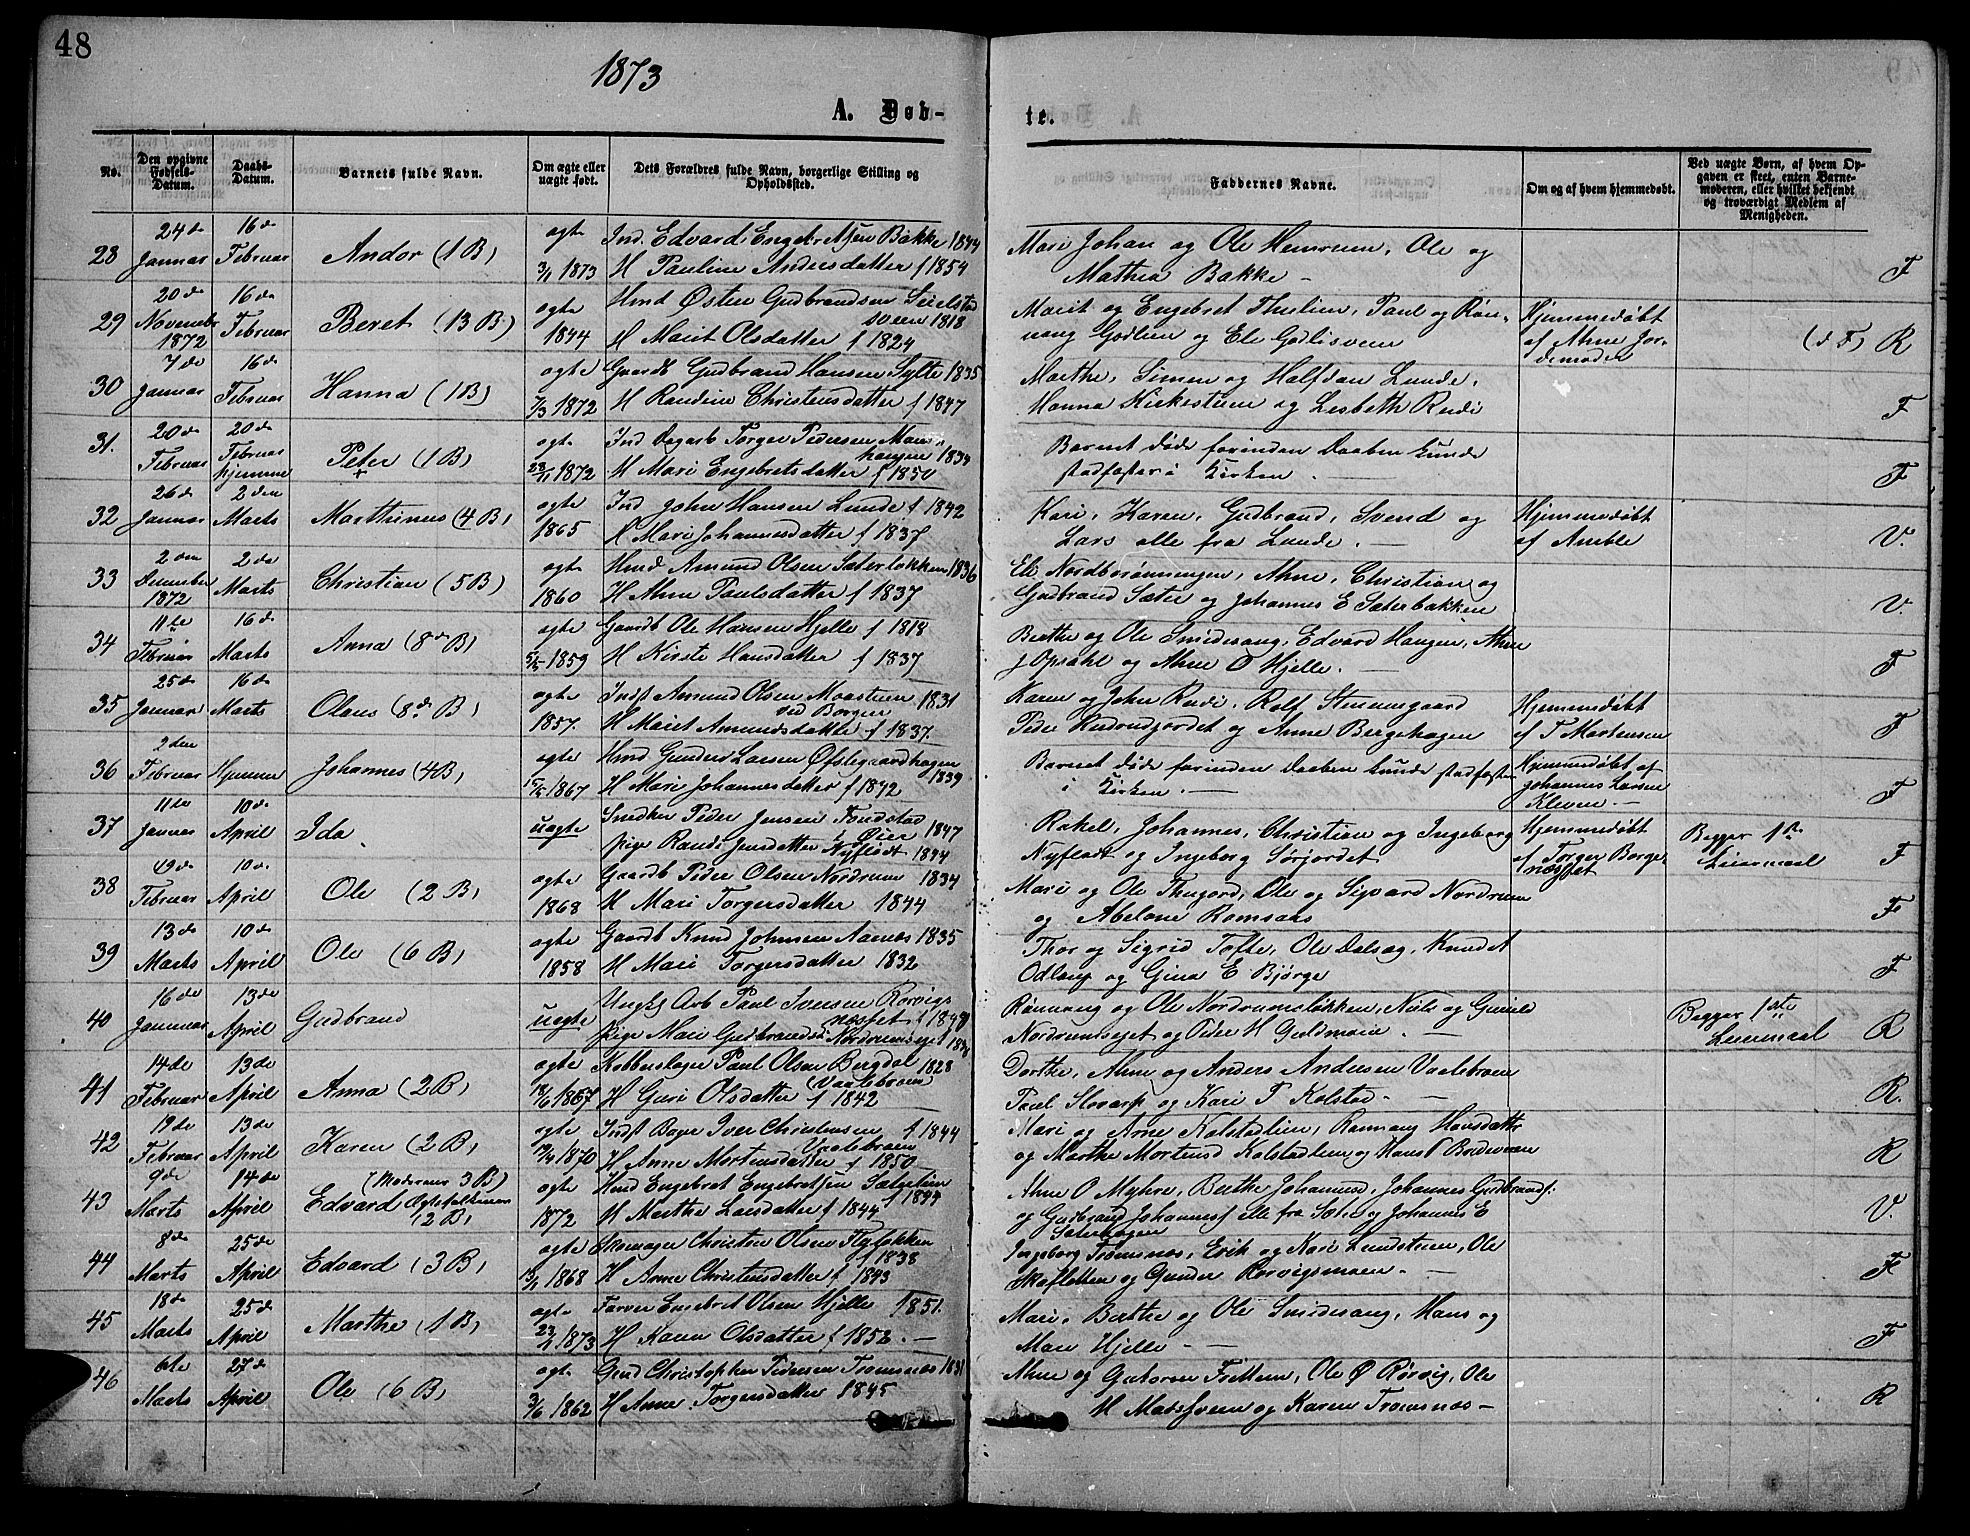 48
1873
A. Døb-
te.
No.
Den opgivne Fødsels-Datum.
Daabs-Datum.
Barnets fulde Navn.
Om ægte eller uægte født.
Dets Forældres fulde Navn, borgerlige Stilling og Opholdssted.
Faddernes Navne.
Om og af hvem hjemmedøbt.
Ved uægte Børn, af hvem Opgaven er skeet, enten Barnemoderen, eller hvilket bekjendt og troværdigt Medlem af Menigheden.
28 24de Januar 16de Februar Andor (1 B) ægte 3/1 1873
Ind. Edvard Engebretsen Bakke 1844
H Pauline Andersdatter f 1854
Mari Johan og Ole Hemruem, Ole og
Mathea Bakke —
F
29 20de November 1872 16de Februar Beret (13 B) ægte 1844
Hmd Østen Gudbrandsen Seielstad
sveen 1818
H Marit Olsdatter f 1824
Marit og Engebret Thulien, Paul og Røn-
nang Godlien og Eli Godlisveen
Hjemmedøbt
af Ahne Jor-
demoder
(d F) R
30 7de Januar 16de Februar Hanna (1 B) ægte 7/3 1872
Gaardb Gudbrand Hansen Sylte 1835
H Randine Christensdatter f 1847
Marthe, Simen og Halfdan Lunde,
Hanna Kirkestuen og Lisbeth Rudi
F
31. 20de Februar 20de Februar hjemme Peter (1 B) ægte 23/11 1872
Ind Dagarb Torger Pedersen Moens
haugen 1834
H Mari Engebretsdatter f 1850
Barnet døde forinden Daaben kunde
stadfæstes i Kirken. —
F
32 26de Januar 2den Marts Marthinus (4 B) ægte 1865
Ind John Hansen Lunde f 1842
H Mari Johannesdatter f 1837
Kari, Karen, Gudbrand, Svend og
Lars alle fra Lunde. —
Hjemmedøbt
af Amble
V.
33 2den December 1872 2de Marts Christian (5 B) ægte 1860
Hmd Amund Olsen Sæterløkken 1836
H Ahne Paulsdatter f 1837
Eli Nordbørønningen, Ahne, Christian og
Gudbrand Sæter og Johannes E Sæterbakken
V.
34 11te Februar 16de Marts Anna (8de B) ægte 1859
Gaardb Ole Hansen Hjelle f 1818
H Kirste Hansdatter f 1837
Berthe og Ole Smidesang, Edvard Haugen, Ahne
J Opsahl og Ahne O Hjelle. —
F
35 25de Januar 16de Marts Olaus (8de B) ægte 1857.
Indst Amund Olsen Moastuen 1831
ved Borgen
H Marit Amundsdatter f 1837.
Karen og John Rudi, Rolf Steinsgaard
Peder Rudrudjordet og Anne Bergehagen
Hjemmedøbt
af T Mortensen
F
36 2den Februar Hjemme Johannes (4 B) ægte 1867
Hmd Gunder Larsen Øfstegaardhagen
1839
H Mari Johannesdatter f 1842
Barnet døde forinden Daaben kunde stadfæstes
i Kirken. —
Hjemmedøbt af
Johannes Larsen
Kleven. —
F
37 11te Januar 10de April Ida. uægte
Snedker Peder Jensen Fonstad
i Øier 1847
Pige Randi Jensdatter Nyflødt 1844
Rakel, Johannes, Christian og Ingeborg
Nyflødt og Ingeborg Sørjordet
Hjemmedøbt
af Torger Borge-
næsset
Begger 1ste
Leiermaal
F
38 19de Februar 10de April Ole (2 B) ægte 1868
Gaardb Peder Olsen Nordrum 1834
H Mari Torgersdatter 1844
Mari og Ole Thugord, Ole og Sigvard Nordrum
og Abelone Romsaas
F
39 13de Marts 10de April Ole (6 B) ægte 1858
Gaardb Knud Johnsen Aaenæs 1835
H Mari Torgersdatter 1832
Thor og Sigrid Tofte, Ole Dalsæg, Knudt
Odlaup og Gina E Bjørge
F
40 16de Januar 13de April Gudbrand uægte
Ungk Arb Paul Iversen Rorvigs
næsset f 1848
Pige Mari Gudbrandsd. Nordrumseget
Rønnang og Ole Nordrumsløkken, Niels og Gunild
Nordrumseget og Peder H Guldmoen. —
Begger 1ste
Leiermaal
R
41 14de Februar 13de April Anna (2 B) ægte 18/6 1867
Kobberslager Paul Olsen Bergdal 1828
(Vaalebroen)
H Guri Olsdatter f 1842
Dorthe, Ahne og Anders Andersen Vaalebroen
Paul Slovarp og Kari P Kolstad. —
R.
42 19de Februar 13de April Karen (2 B) ægte 1870
Indst Bager Iver Christensen f 1844
Vaalebroen
H Anne Mortensdatter f 1850
Mari og Arne Kolstadlien, Rønnang Hansdatter
og Marthe Mortensd Kolstadlien og Hans P Bredeveen
R
43 9de Marts 14de April (Moderens 3 B) Edvard Ægteskabernes (2 B) ægte 1872
Hmd Engebret Engebretsen Sætrelien
f 1844
H Marthe Larsdatter f 1844
Ahne O Myhre, Berthe Johannesd, Johannes Gudbrandf:
og Gudbrand Johannesf alle fra Sæter og Johannes E
Sæterhagen
V.
44 8de Marts 25de April Edvard (3 B) ægte 1868
Skomager Christen Olsen Flyløkken
f 1838
H Anne Christensdatter f 1843
Ingeborg Tromsnæs, Erik og Kari Lundstuen, Ole
Skafletten og Gunder Rorvigsmoen. —
F
45 18de Marts 25de April Marthe (1 B) ægte 23/1 1873
Farver Engebret Olsen Hjelle f 1851.
H Karen Olsdatter f 1852. —
Mari, Berthe og Ole Smidesang, Hans og
Mari Hjelle —
F
46 6te Marts 27de April Ole (6 B) ægte 3/6 1862
Gmd Christopher Pedersen Tromsnæs 1831
H Anne Torgersdatter 1845
Ahne og Gutoren Frettem, Ole Ø Rørvig, Ole
H Matssveen og Karen Tromsnæs —
R